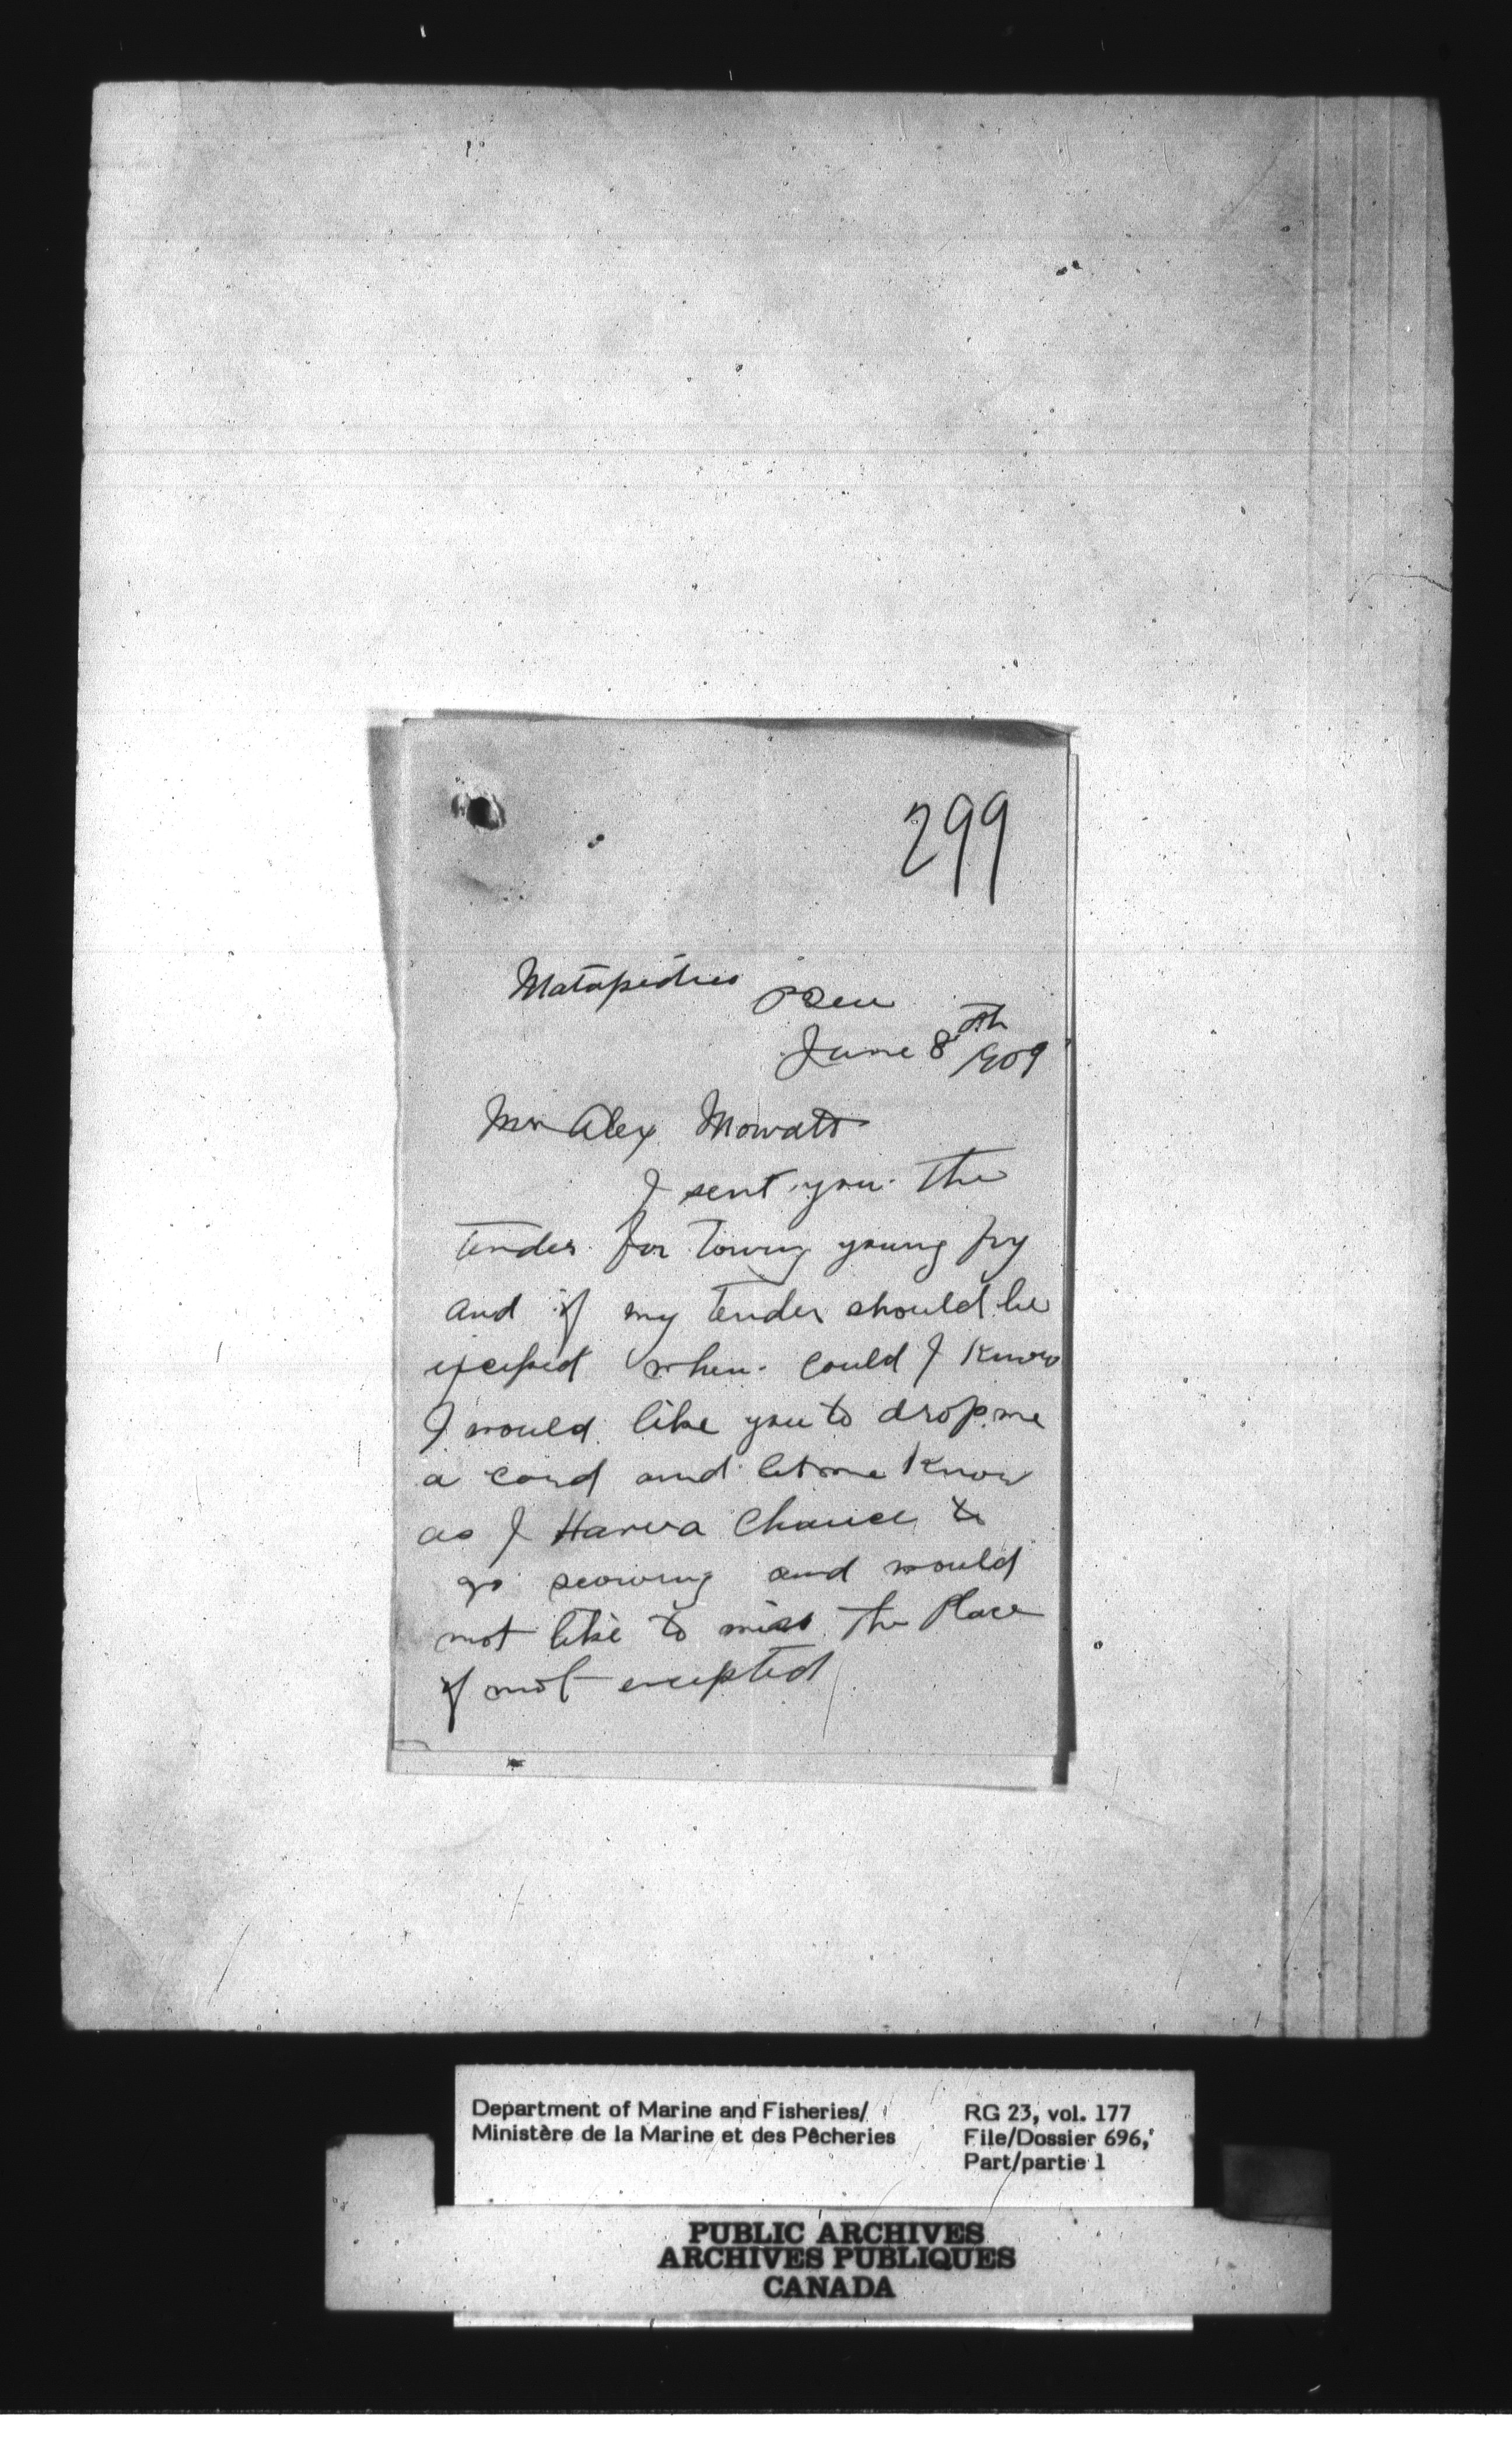 299
Matapedia PQue
June 8th 1909
Mr Alex Mowatt
I sent you the
tender for towing young fry
and if my tender should be
excepted when could I know
I would like you to drop me
a card and let me know
as I Have a Chance to
go scowing and would
not like to miss the Place
if not excepted
Department of Marine and Fisheries/
Ministère de la Marine et des Pêcheries
RG 23, vol. 177
File/Dossier 696,
Part/partie 1
PUBLIC ARCHIVES
ARCHIVES PUBLIQUES
CANADA